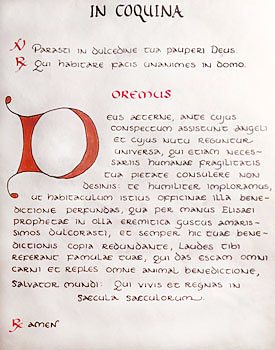 IN COQUINA
℣ Parasti in dulcedine tua pauperi Deus.
℟ Qui habitare facis unanimes in domo.
OREMUS
Deus aeterne, ante cujus
conspectum assistunt angeli
et cujus nutu reguntur
universa, qui etiam neces-
sariis humanae fragilitatis
tua pietate consulere non
desinis: te humiliter imploramus,
ut habitaculum istius officinae illa bene-
dictione perfundas, qua per manus Elisaei
prophetae in olla eremitica gustus amaris-
simos dulcorasti, et semper hic tuae bene-
dictionis copia redundante, laudes tibi
referant famulae tuae, qui das escam omni
carni et reples omne animal benedictione,
Salvator mundi: Qui vivis et regnas in
saecula saeculorum.
℟ amen